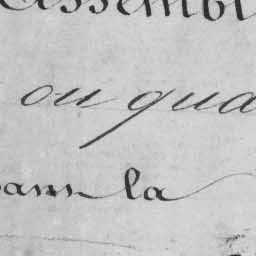 Assembl
ou qua
dans la